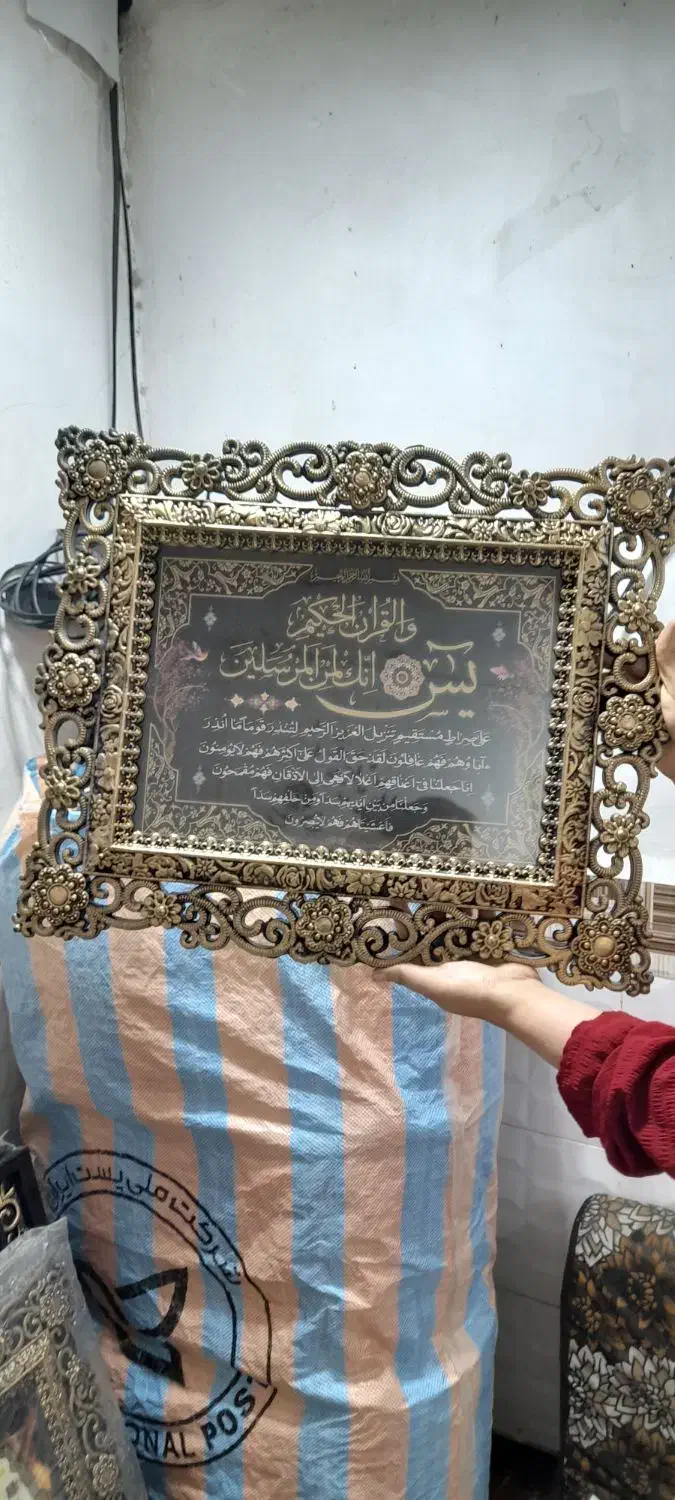 والقرآن الحكيم
يس انك لمن المرسلين
على صراط مستقيم تنزيل العزيز الرحيم لتنذر قوما ما انذر
ءاباؤهم فهم غافلون لقد حق القول على اكثرهم فهم لايؤمنون
انا جعلنا في اعناقهم اغلالا فهي الى الاذقان فهم مقمحون
وجعلنا من بين ايديهم سدا ومن خلفهم سدا
فاغشيناهم فهم لايبصرون
شرکت ملی پست ایران
ONAL POS